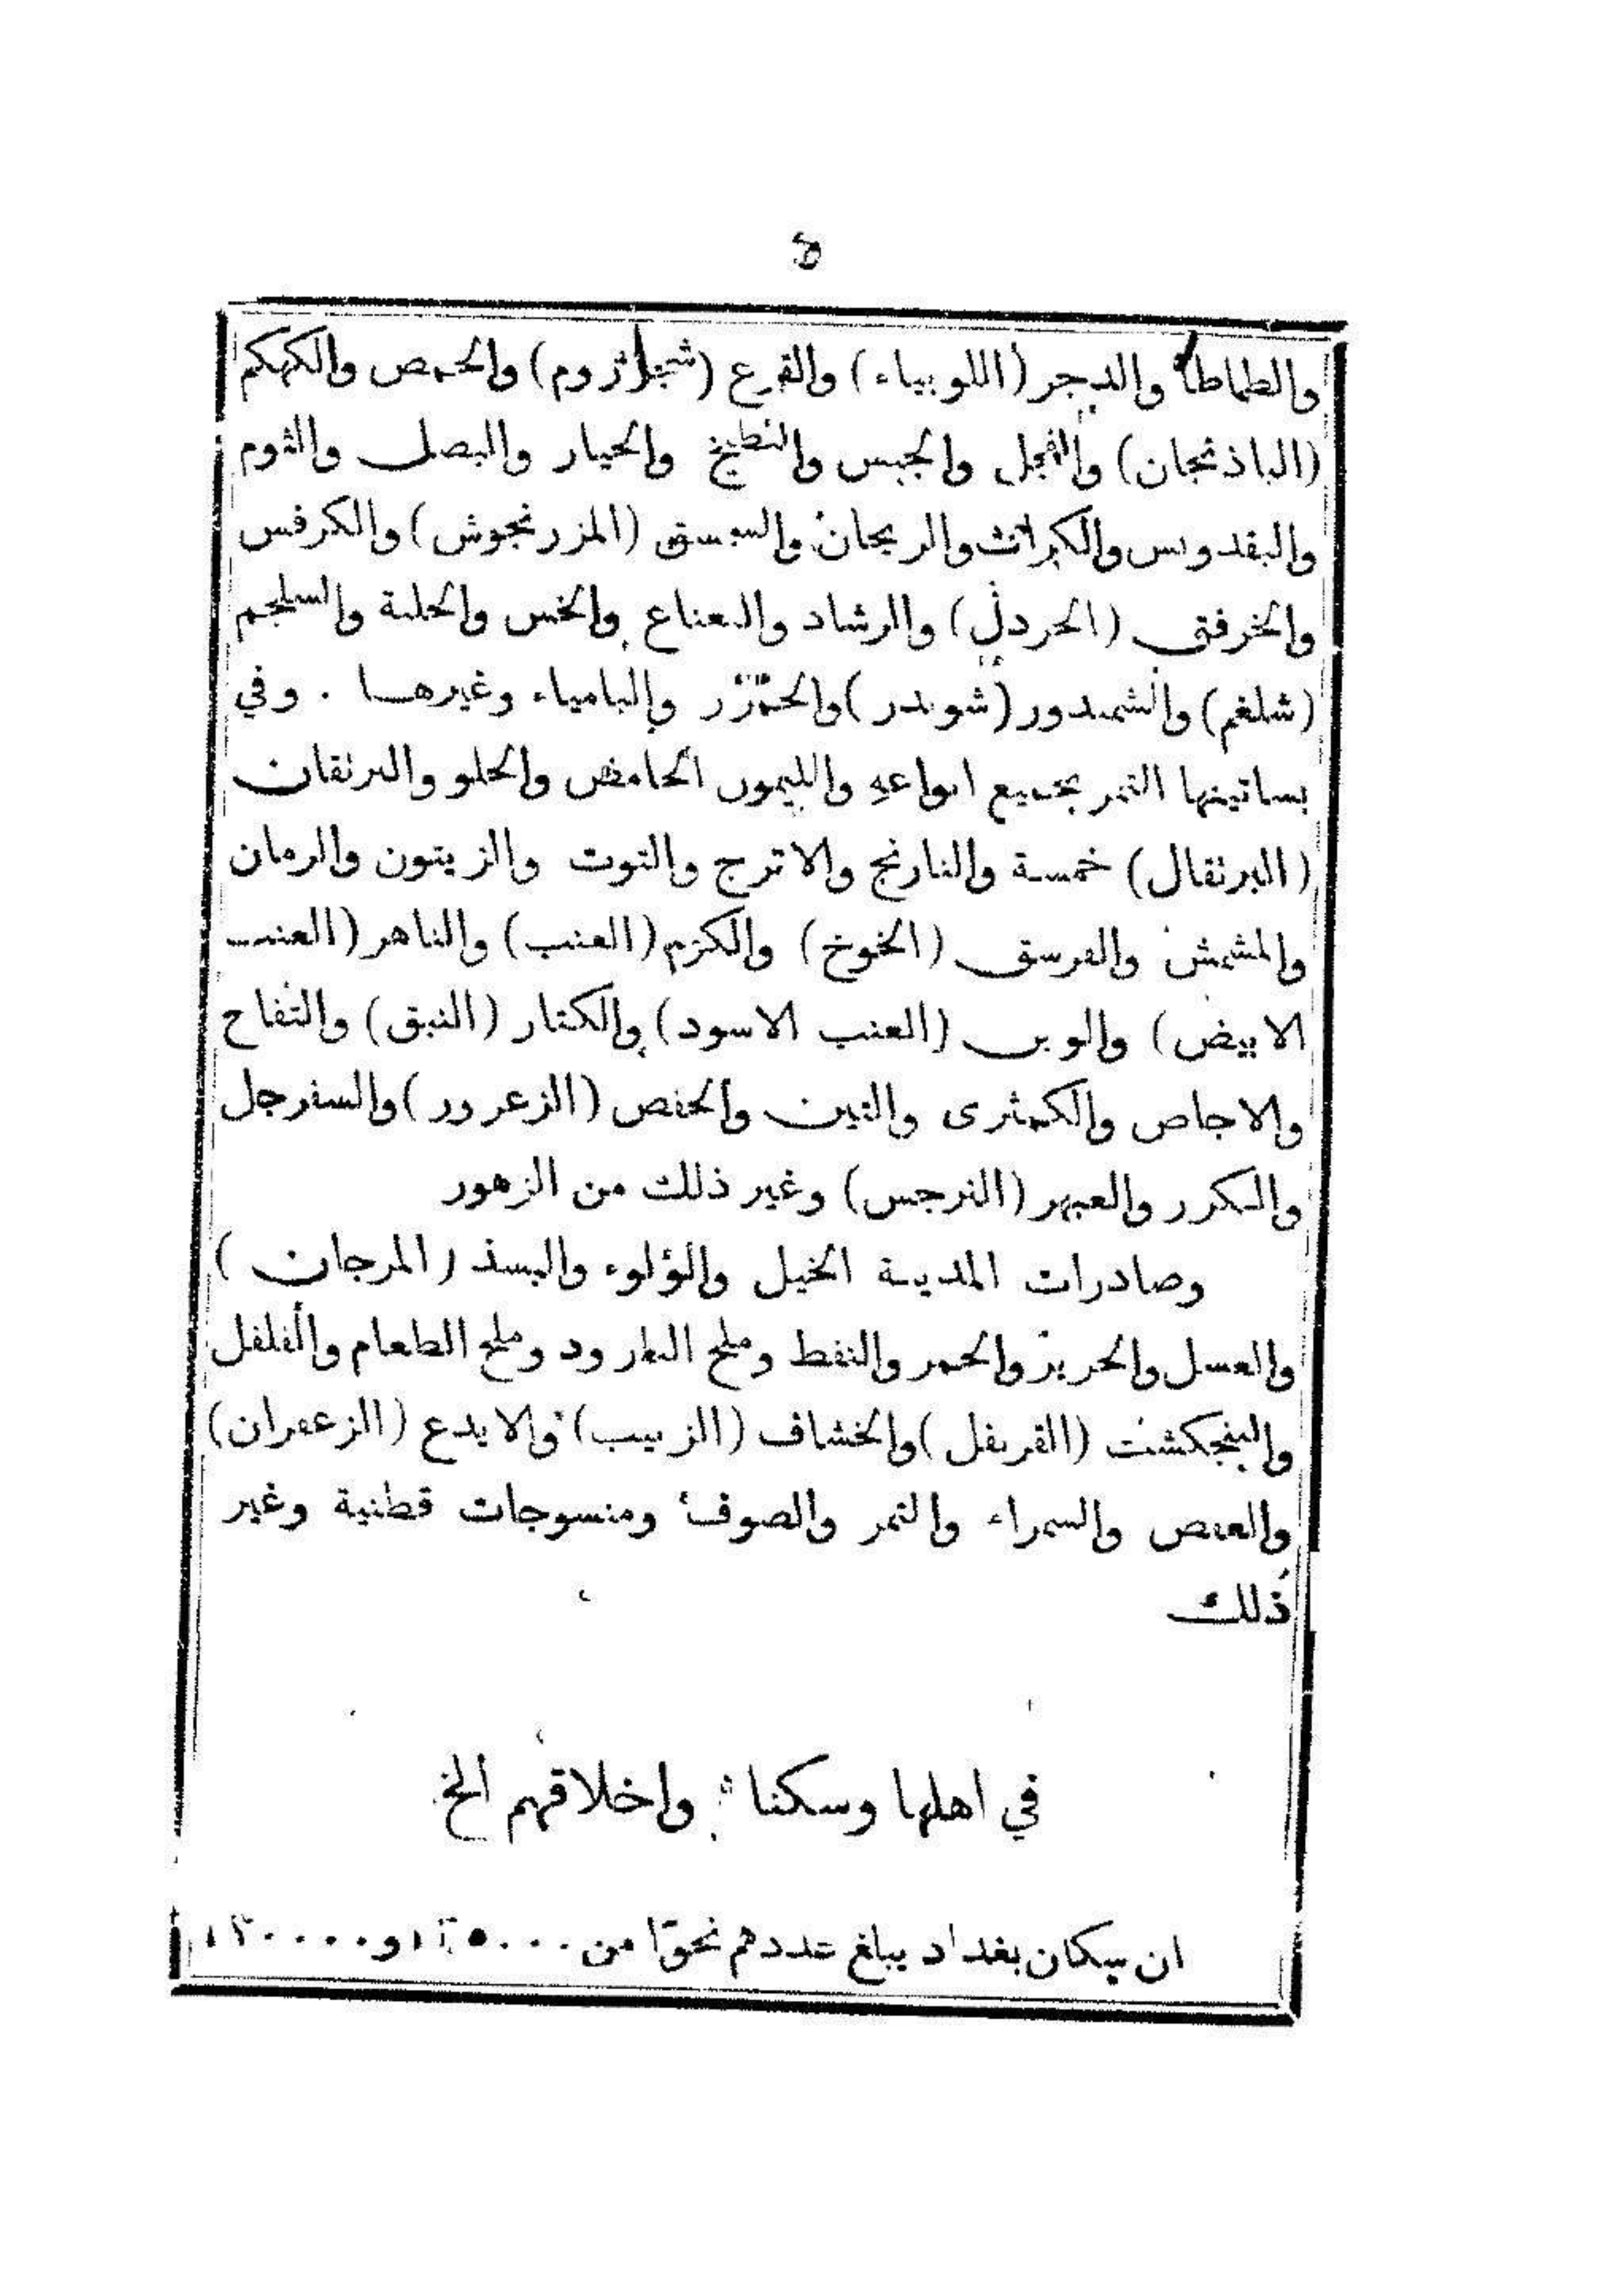 ٥
والطماطة والدجر (اللوبياء) والقرع (شجر) والحمص والكهكم
(الباذنجان) والفجل والجبس والبطيخ والخيار والبصل والثوم
والبقدونس والكراث والريحان والسمسق (المزرنجوش) والكرفس
والخرفق (الخردل) والرشاد والنعناع والخس والحلبة والسلجم
(شلغم) والشمندور (شوندر) والبامياء وغيرها . وفي
بساتينها التمر بجميع انواعه والليمون الحامض والحلو والبرتقان
(البرتقال) خمسة والنارنج والاترج والتوت والزيتون والرمان
والمشمش والفرسق (الخوخ) والكرم (العنب) والناهر (العنب
الابيض) والوين (العنب الاسود) والكنار (النبق) والتفاح
والاجاص والكمثرى والتين والحفص (الزعرور) والسفرجل
والعبهر (النرجس) وغير ذلك من الزهور
وصادرات المدينة الخيل واللؤلوء والبسذ (المرجان)
والعسل والحرير والخمر والنفط وملح البارود وملح الطعام والفلفل
والبنجكشت (القرنفل) والخشاف (الزبيب) والايدع (الزعفران)
والعفص والسمراء والتمر والصوف ومنسوجات قطنية وغير
ذلك
في اهلها وسكنا واخلاقهم الخ
ان سكان بغداد يبلغ عددهم نحوًا من